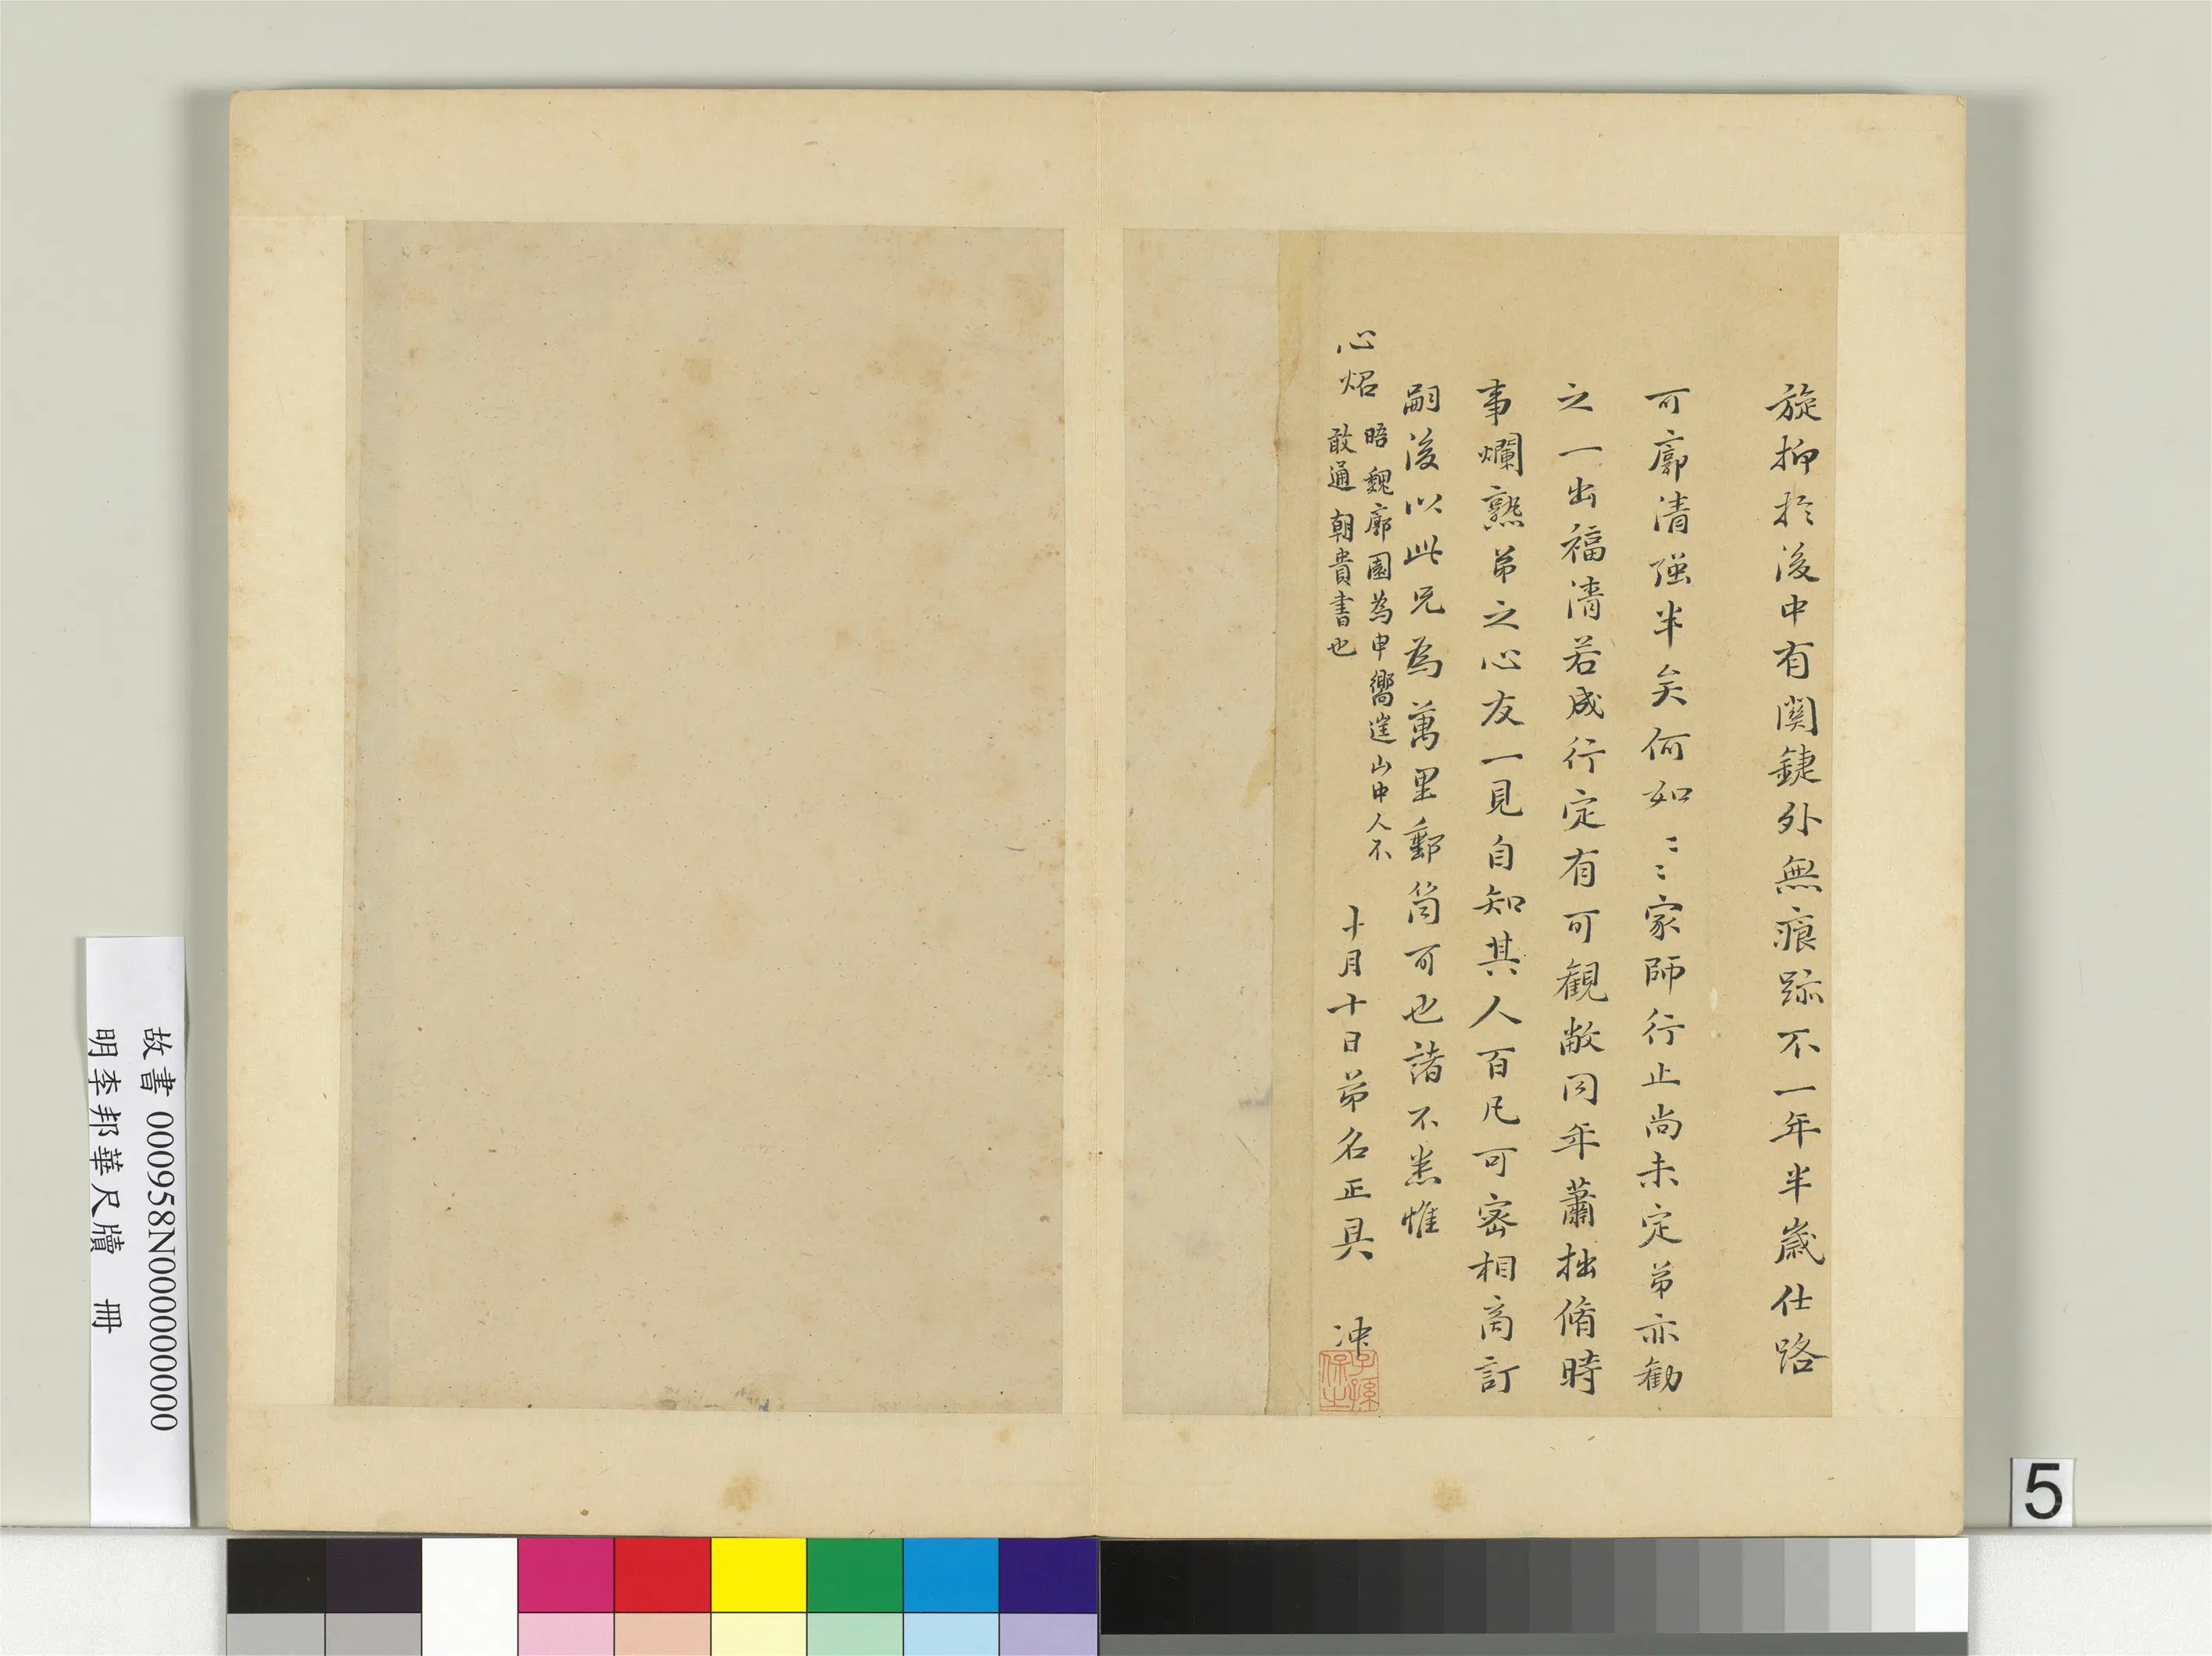 旋抑於後中有関鍵外無痕跡不一年半歲仕路
可廓清强半矣何如〻〻家師行止尚未定弟亦勸
之一出福清若成行定有可觀敝同年蕭拙脩時
事爛熟弟之心友一見自知其人百凡可密相商訂
嗣後以此兄為萬里郵筒可也諸不悉惟
心炤
晤魏廓園為申嚮往山中人不
敢通朝貴書也
十月十日弟名正具
冲
子孫
保之
故書 000958N000000000
明李邦華尺牘 冊
5